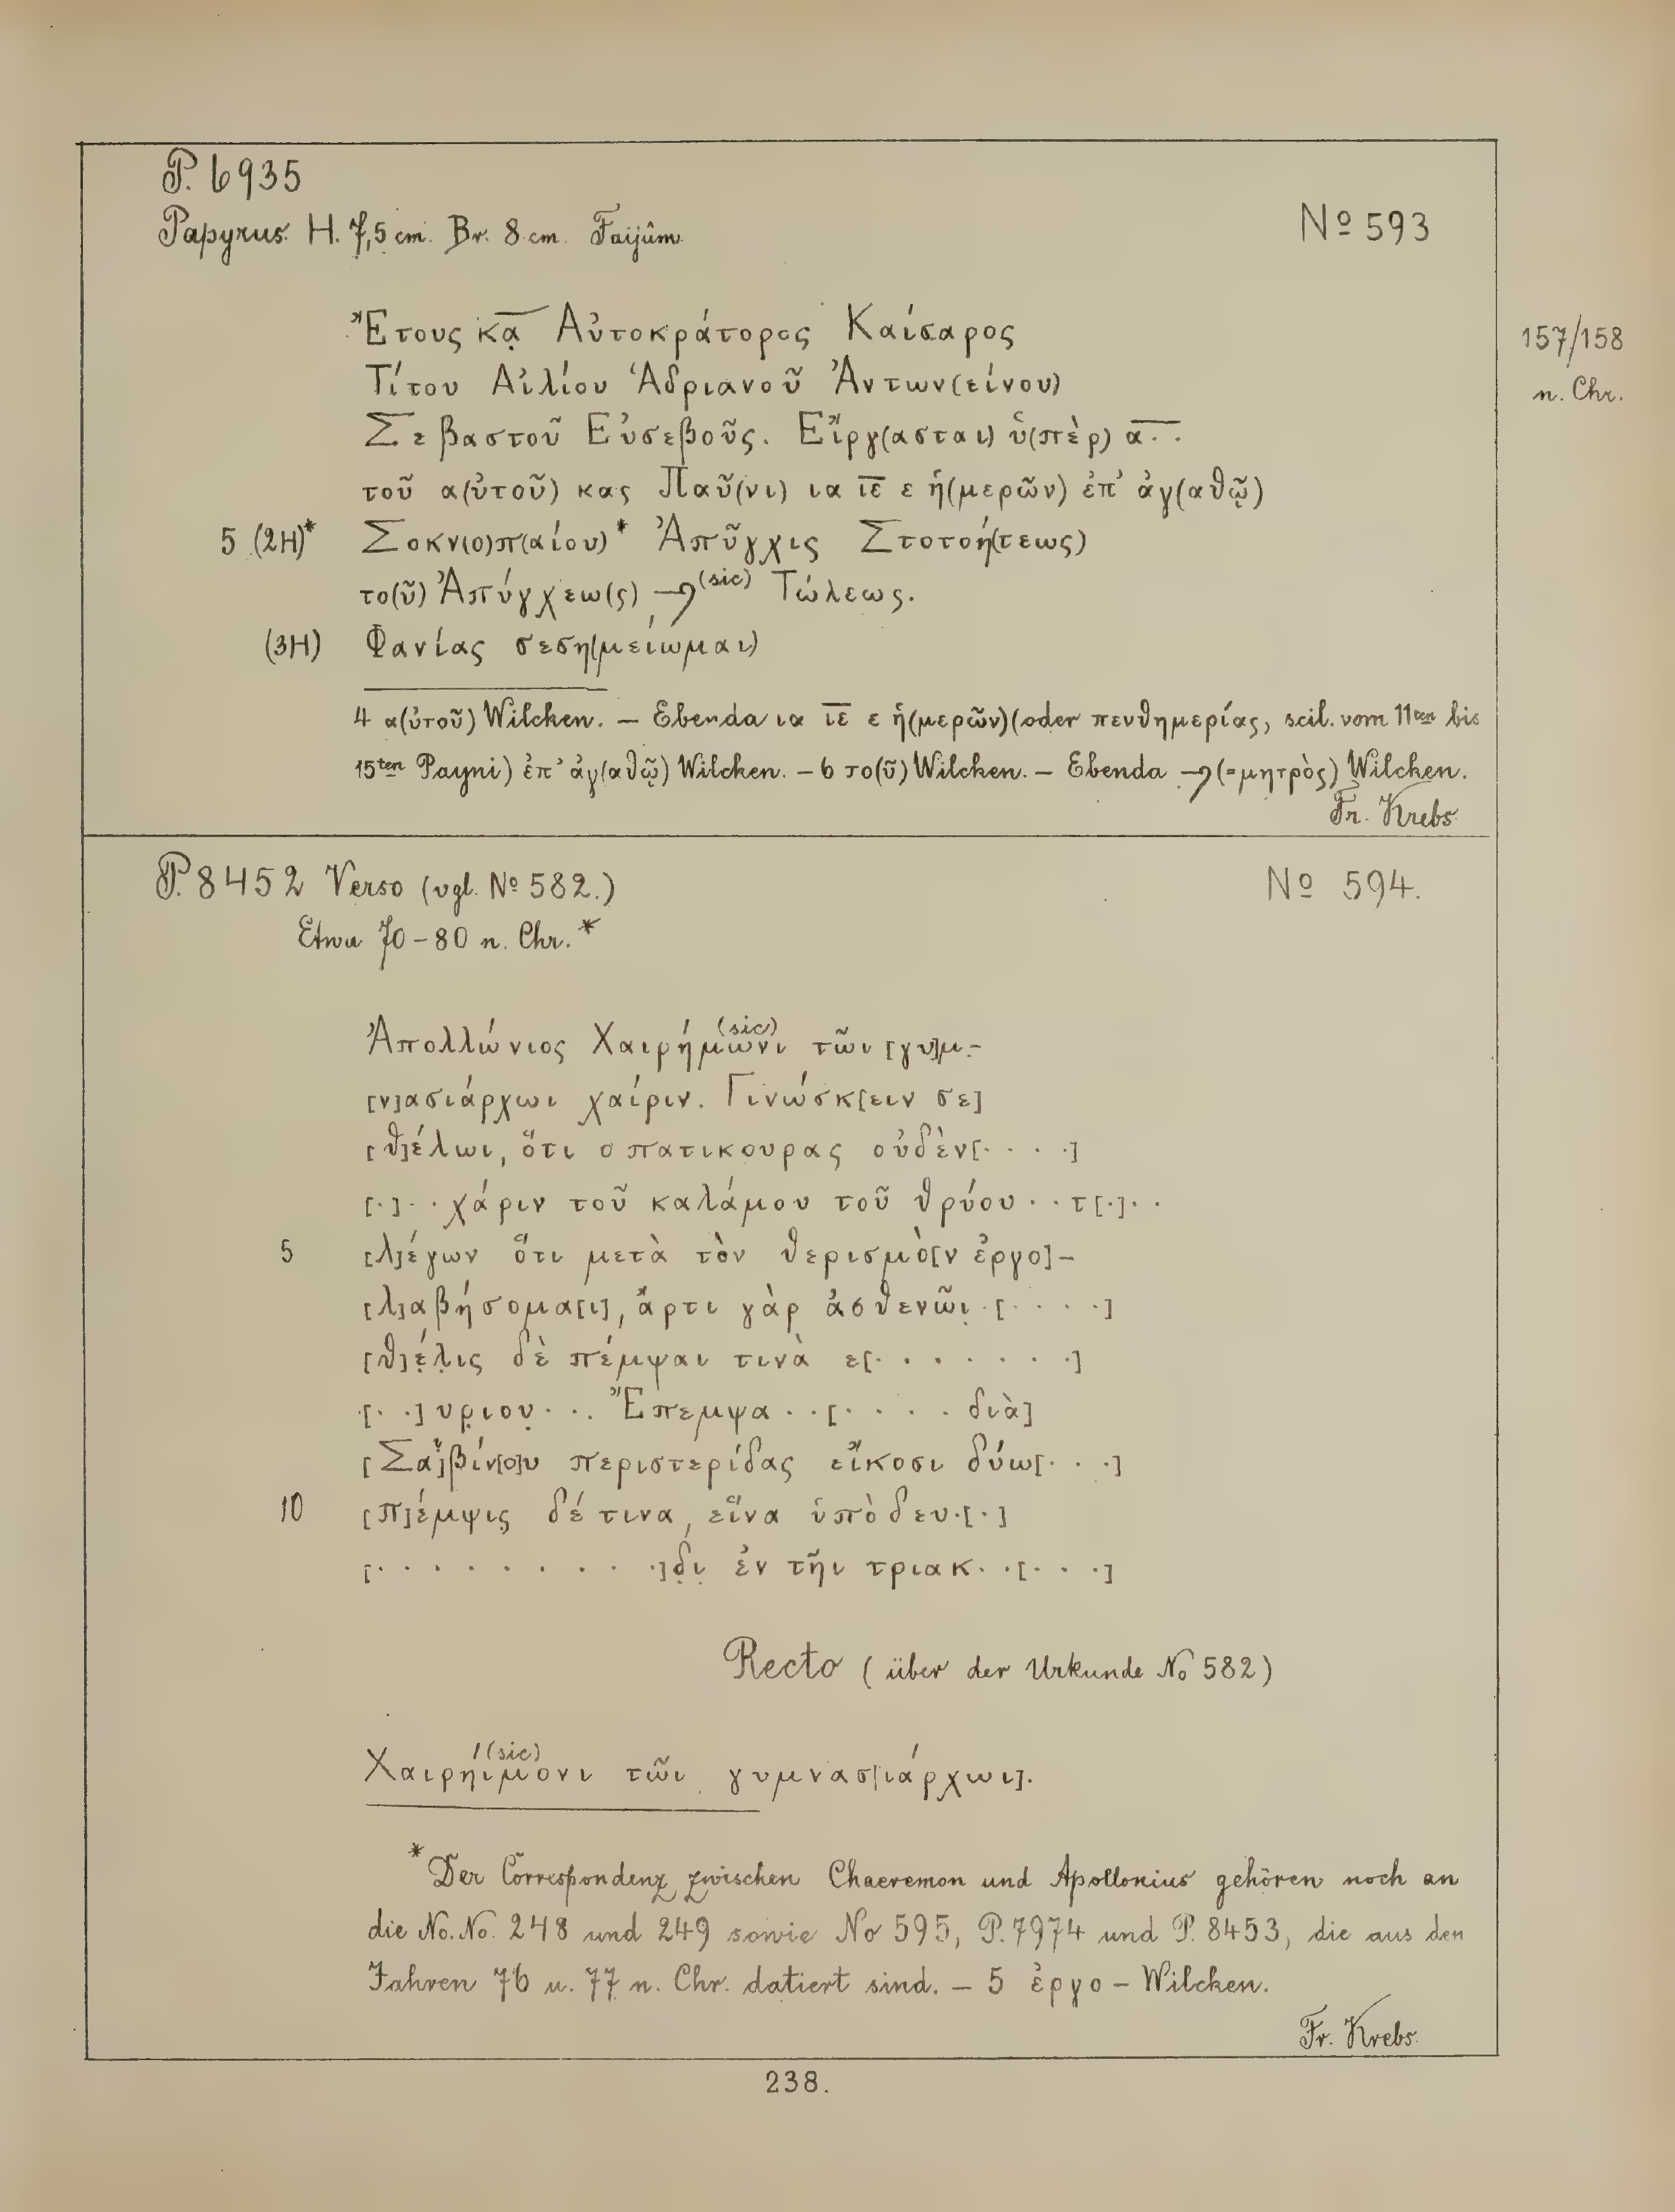 P. 6935
Papyrus. H. 7,5 cm. Br. 8 cm. Faijûm.
No 593
Ἔτους κα̣̅ Αὐτοκράτορος Καίσαρος
157/158
Τίτου Αἰλίου Ἁδριανοῦ Ἀντων(είνου)
n. Chr.
Σεβαστοῦ Εὐσεβοῦς. Εἴργ(ασται) ὑ(πὲρ) α̅ . .
τοῦ α(ὐτοῦ) κας Παῦ(νι) ια ι̅ε̅ ε ἡ(μερῶν) ἐπ' ἀγ(αθῷ)
5 (2H)* Σοκν(ο)π(αίου)* Ἀπῦγχις Στοτοή(τεως)
το(ῦ) Ἀπύγχεω(ς) (sic) Τώλεως.
(3H) Φανίας σεση(μείωμαι)
4 α(ὐτοῦ) Wilcken. — Ebenda ια ι̅ε̅ ε ἡ(μερῶν) (oder πενθημερίας, scil. vom 11ten bis
15ten Payni) ἐπ' ἀγ(αθῷ) Wilcken. — 6 το(ῦ) Wilcken. — Ebenda (= μητρὸς) Wilcken.
Fr. Krebs
P. 8452 Verso (vgl. No 582.)
No 594.
Etwa 70–80 n. Chr. *
Ἀπολλώνιος Χαιρήμωνι (sic) τῶι [γυ]μ.-
[ν]ασιάρχωι χαίριν. Γινώσκ[ειν σε]
[θ]έλωι, ὅτι ο πατικουρας οὐδὲν[. . . .]
[.] . . χάριν τοῦ καλάμου τοῦ θρύου . . τ[.] . .
5 [λ]έγων ὅτι μετὰ τὸν θερισμὸ[ν ἐργο]-
[λ]αβήσομα[ι], ἄρτι γὰρ ἀσθενῶι̣ . [. . . .]
[θ]έ̣λ̣ις δὲ πέμψαι τινὰ ε[. . . . . . .]
[. .] υρ̣ιου̣ . . . Ἔπεμψα . . [. . . . διὰ]
[Σα]βίν[ο]υ περιστερίδας εἴκοσι δύω[. . .]
10 [π]έμψις̣ δέ τινα, εἵνα ὑπὸ δευ.[.]
[. . . . . . . . . .]δ̣ι̣ ἐν τῆι τριακ . . [. . .]
Recto (über der Urkunde No 582)
Χαιρηίμονι (sic) τῶι γυμνασ[ιάρχωι].
* Der Correspondenz zwischen Chaeremon und Apollonius gehören noch an
die No. No. 248 und 249 sowie No 595, P. 7974 und P. 8453, die aus den
Jahren 76 u. 77 n. Chr. datiert sind. — 5 ἐργο – Wilcken.
Fr. Krebs.
238.